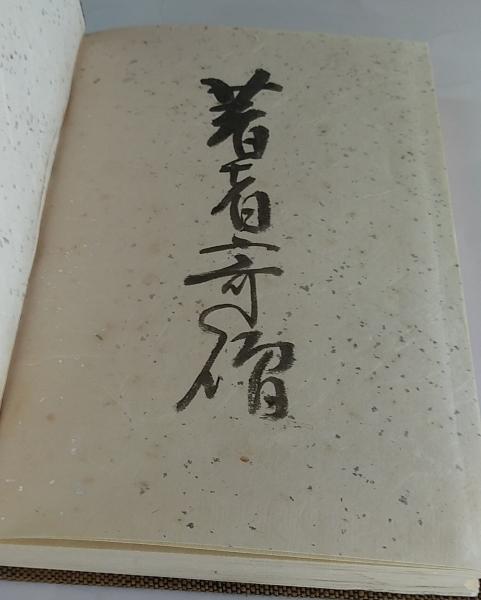 著者寄贈